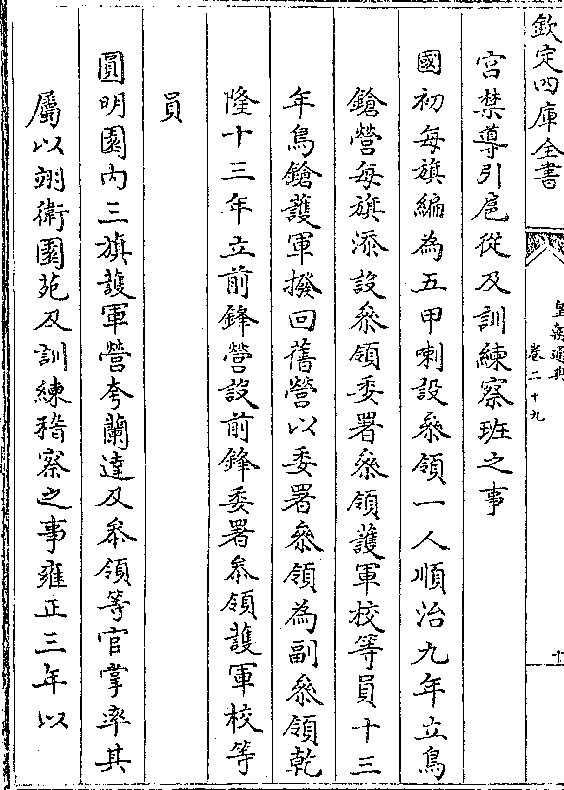 欽定四庫全書
皇朝通典
卷二十九
十
宮禁導引扈從及訓練察班之事
國初每旗編為五甲喇設叅領一人順治九年立鳥
鎗營每旗添設叅領委署叅領護軍校等員十三
年鳥鎗護軍撥回舊營以委署叅領為副叅領乾
隆十三年立前鋒營設前鋒委署叅領護軍校等
員
圓明園內三旗護軍營夸蘭達及叅領等官掌率其
屬以翊衛園苑及訓練稽察之事雍正三年以